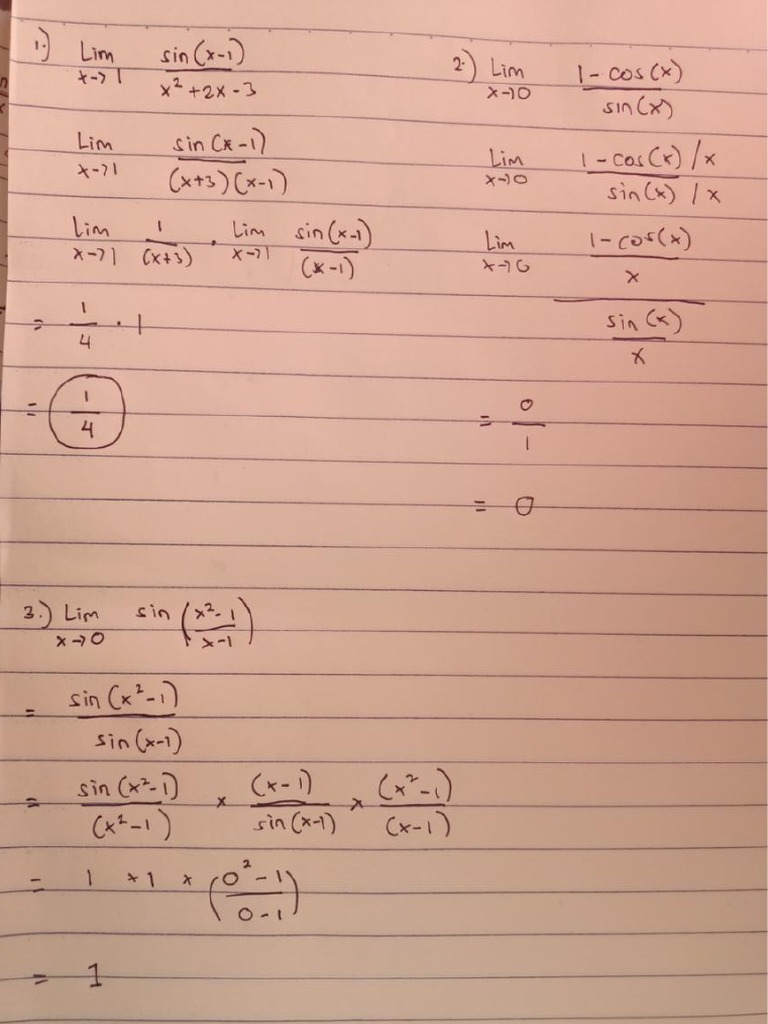 1.) Lim x→1 sin(x-1) / x² + 2x - 3
Lim x→1 sin(x-1) / (x+3)(x-1)
Lim x→1 1 / (x+3) · Lim x→1 sin(x-1) / (x-1)
= 1/4 · 1
= 1/4
2.) Lim x→0 1 - cos(x) / sin(x)
Lim x→0 1 - cos(x) / x / sin(x) / x
Lim x→0 1 - cos(x) / x / sin(x) / x
= 0/1
= 0
3.) Lim x→0 sin (x² - 1 / x - 1)
= sin(x² - 1) / sin(x-1)
= sin(x² - 1) / (x² - 1) × (x-1) / sin(x-1) × (x² - 1) / (x-1)
= 1 × 1 × (0² - 1 / 0 - 1)
= 1